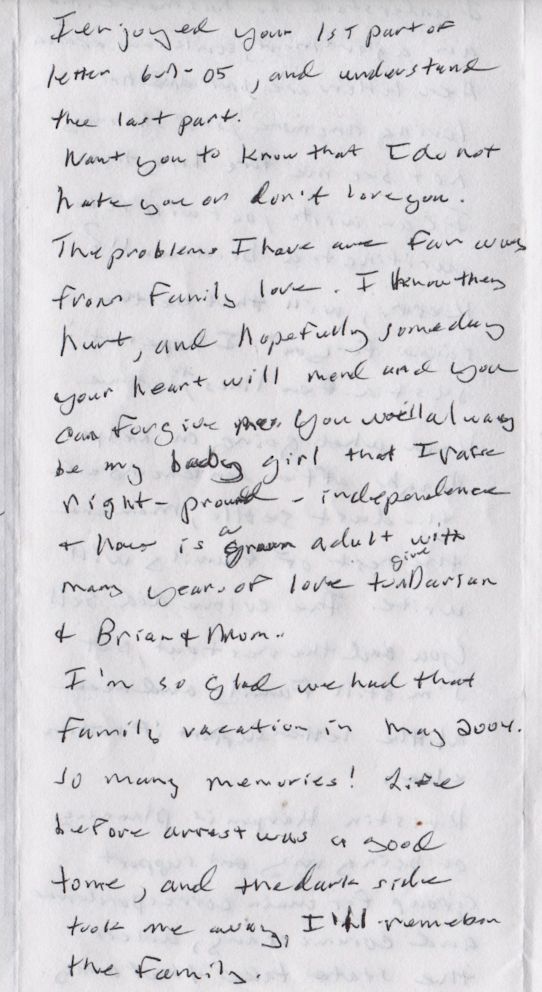 I enjoyed your 1st part of
letter 6-7-05, and understand
the last part.
Want you to know that I do not
hate you or don't love you.
The problems I have are far away
from family love. I know they
hurt, and hopefully someday
your heart will mend and you
can forgive me. You will always
be my baby girl that I raise
right - proud - independence
& now is a grown adult with
many years of love to give Darian
& Brian & Mom.
I'm so glad we had that
family vacation in May 2004.
So many memories! Life
before arrest was a good
tome, and the dark side
took me away, I'll remeber
the family.